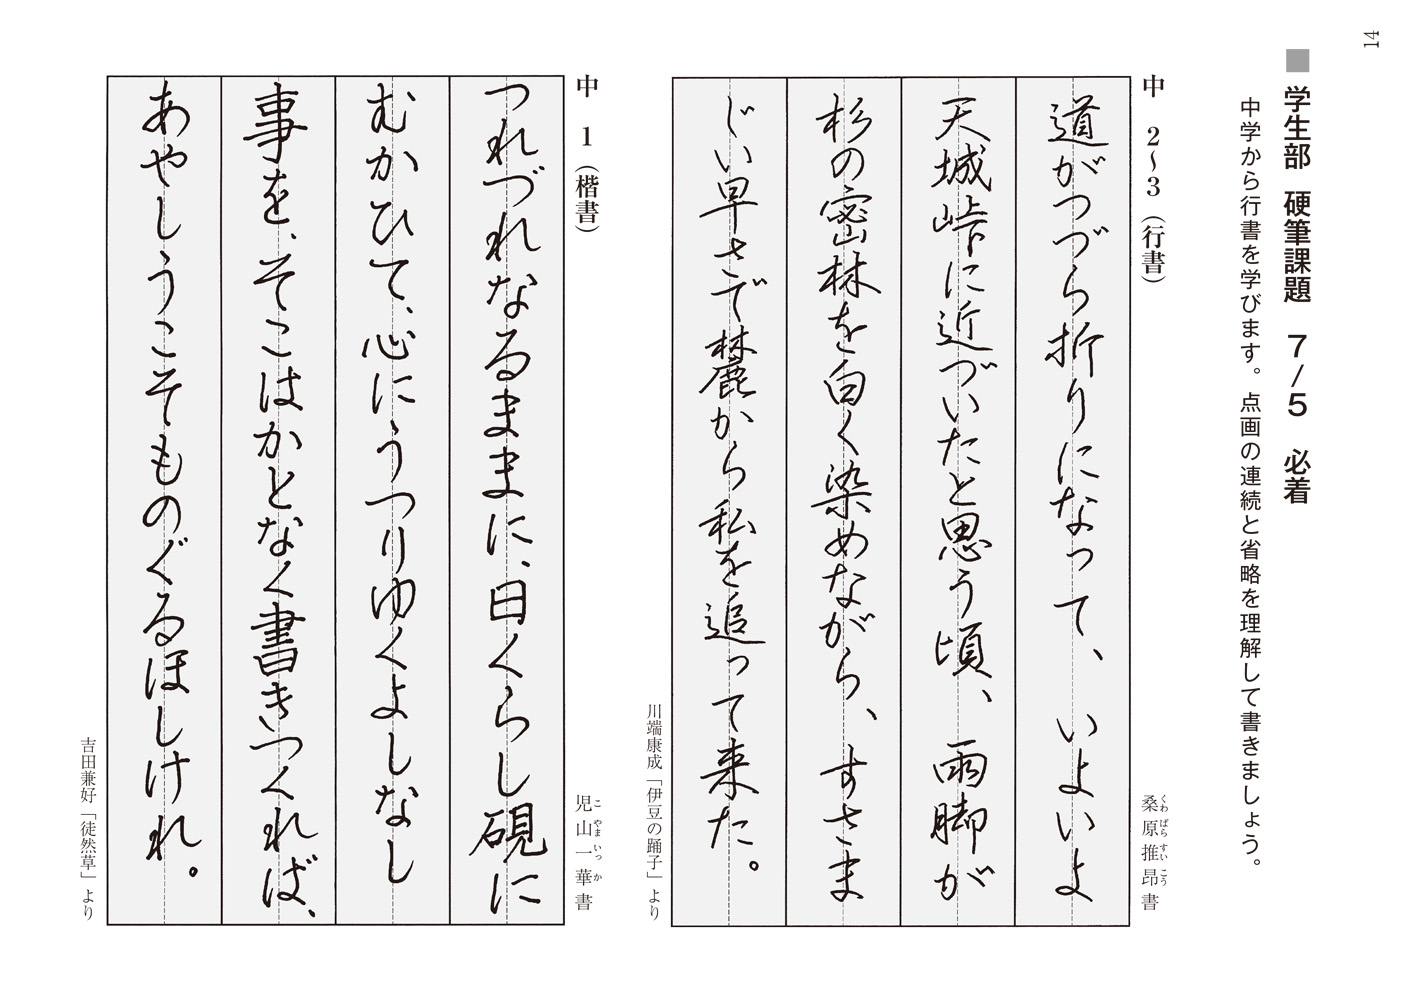 14
■ 学生部 硬筆課題 7/5 必着
中学から行書を学びます。点画の連続と省略を理解して書きましょう。
中 2~3（行書）
桑原推昂書
くわ ばら すい こう
道がつづら折りになって、いよいよ
天城峠に近づいたと思う頃、雨脚が
杉の密林を白く染めながら、すさま
じい早さで麓から私を追って来た。
川端康成「伊豆の踊子」より
中 1（楷書）
児山一華書
こ やま いっ か
つれづれなるままに、日くらし硯に
むかひて、心にうつりゆくよしなし
事を、そこはかとなく書きつくれば、
あやしうこそものぐるほしけれ。
吉田兼好「徒然草」より